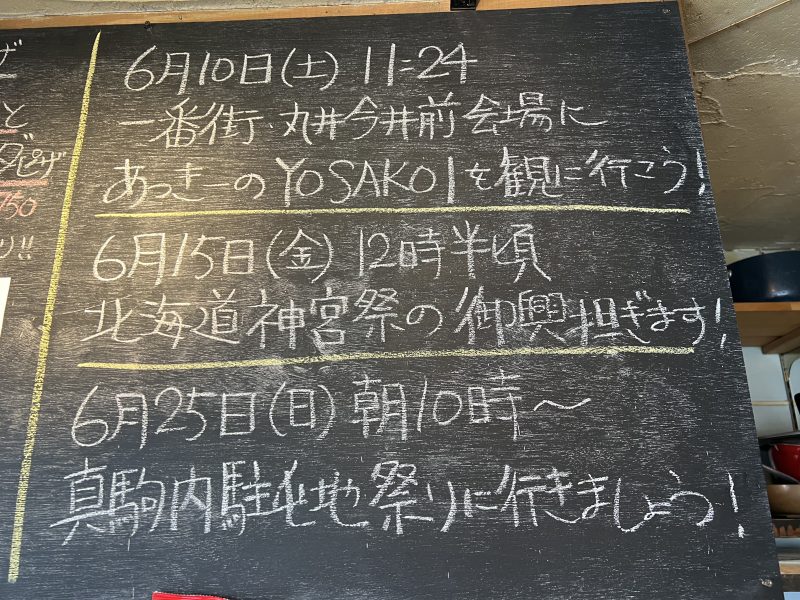 ザ
と
ダピザ
750
り!!
6月10日(土) 11:24
一番街・丸井今井前会場に
あっきーのYOSAKOIを観に行こう!
6月15日(金) 12時半頃
北海道神宮祭の御輿担ぎます!
6月25日(日) 朝10時～
真駒内駐屯地祭りに行きましょう!